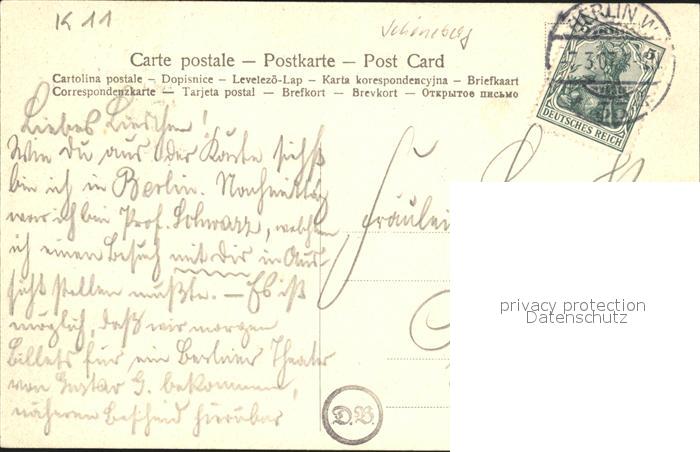 K 11
Schöneberg
Carte postale – Postkarte – Post Card
Cartolina postale – Dopisnice – Levelező-Lap – Karta korespondencyjna – Briefkaart
Correspondenzkarte – Tarjeta postal – Brefkort – Brevkort – Открытое письмо
BERLIN W.
5
DEUTSCHES REICH
Liebes Lieschen!
Wie Du aus der Karte siehst
bin ich in Berlin. Nachmittag
war ich bei Prof. Schwarz, welchem
ich einen Besuch mit Dir in Aus-
sicht stellen mußte. – Es ist
möglich, daß wir morgen
Billets für ein Berliner Theater
von Gustav G. bekommen,
näheren Bescheid hierüber
Fräulein
D.B.
privacy protection
Datenschutz